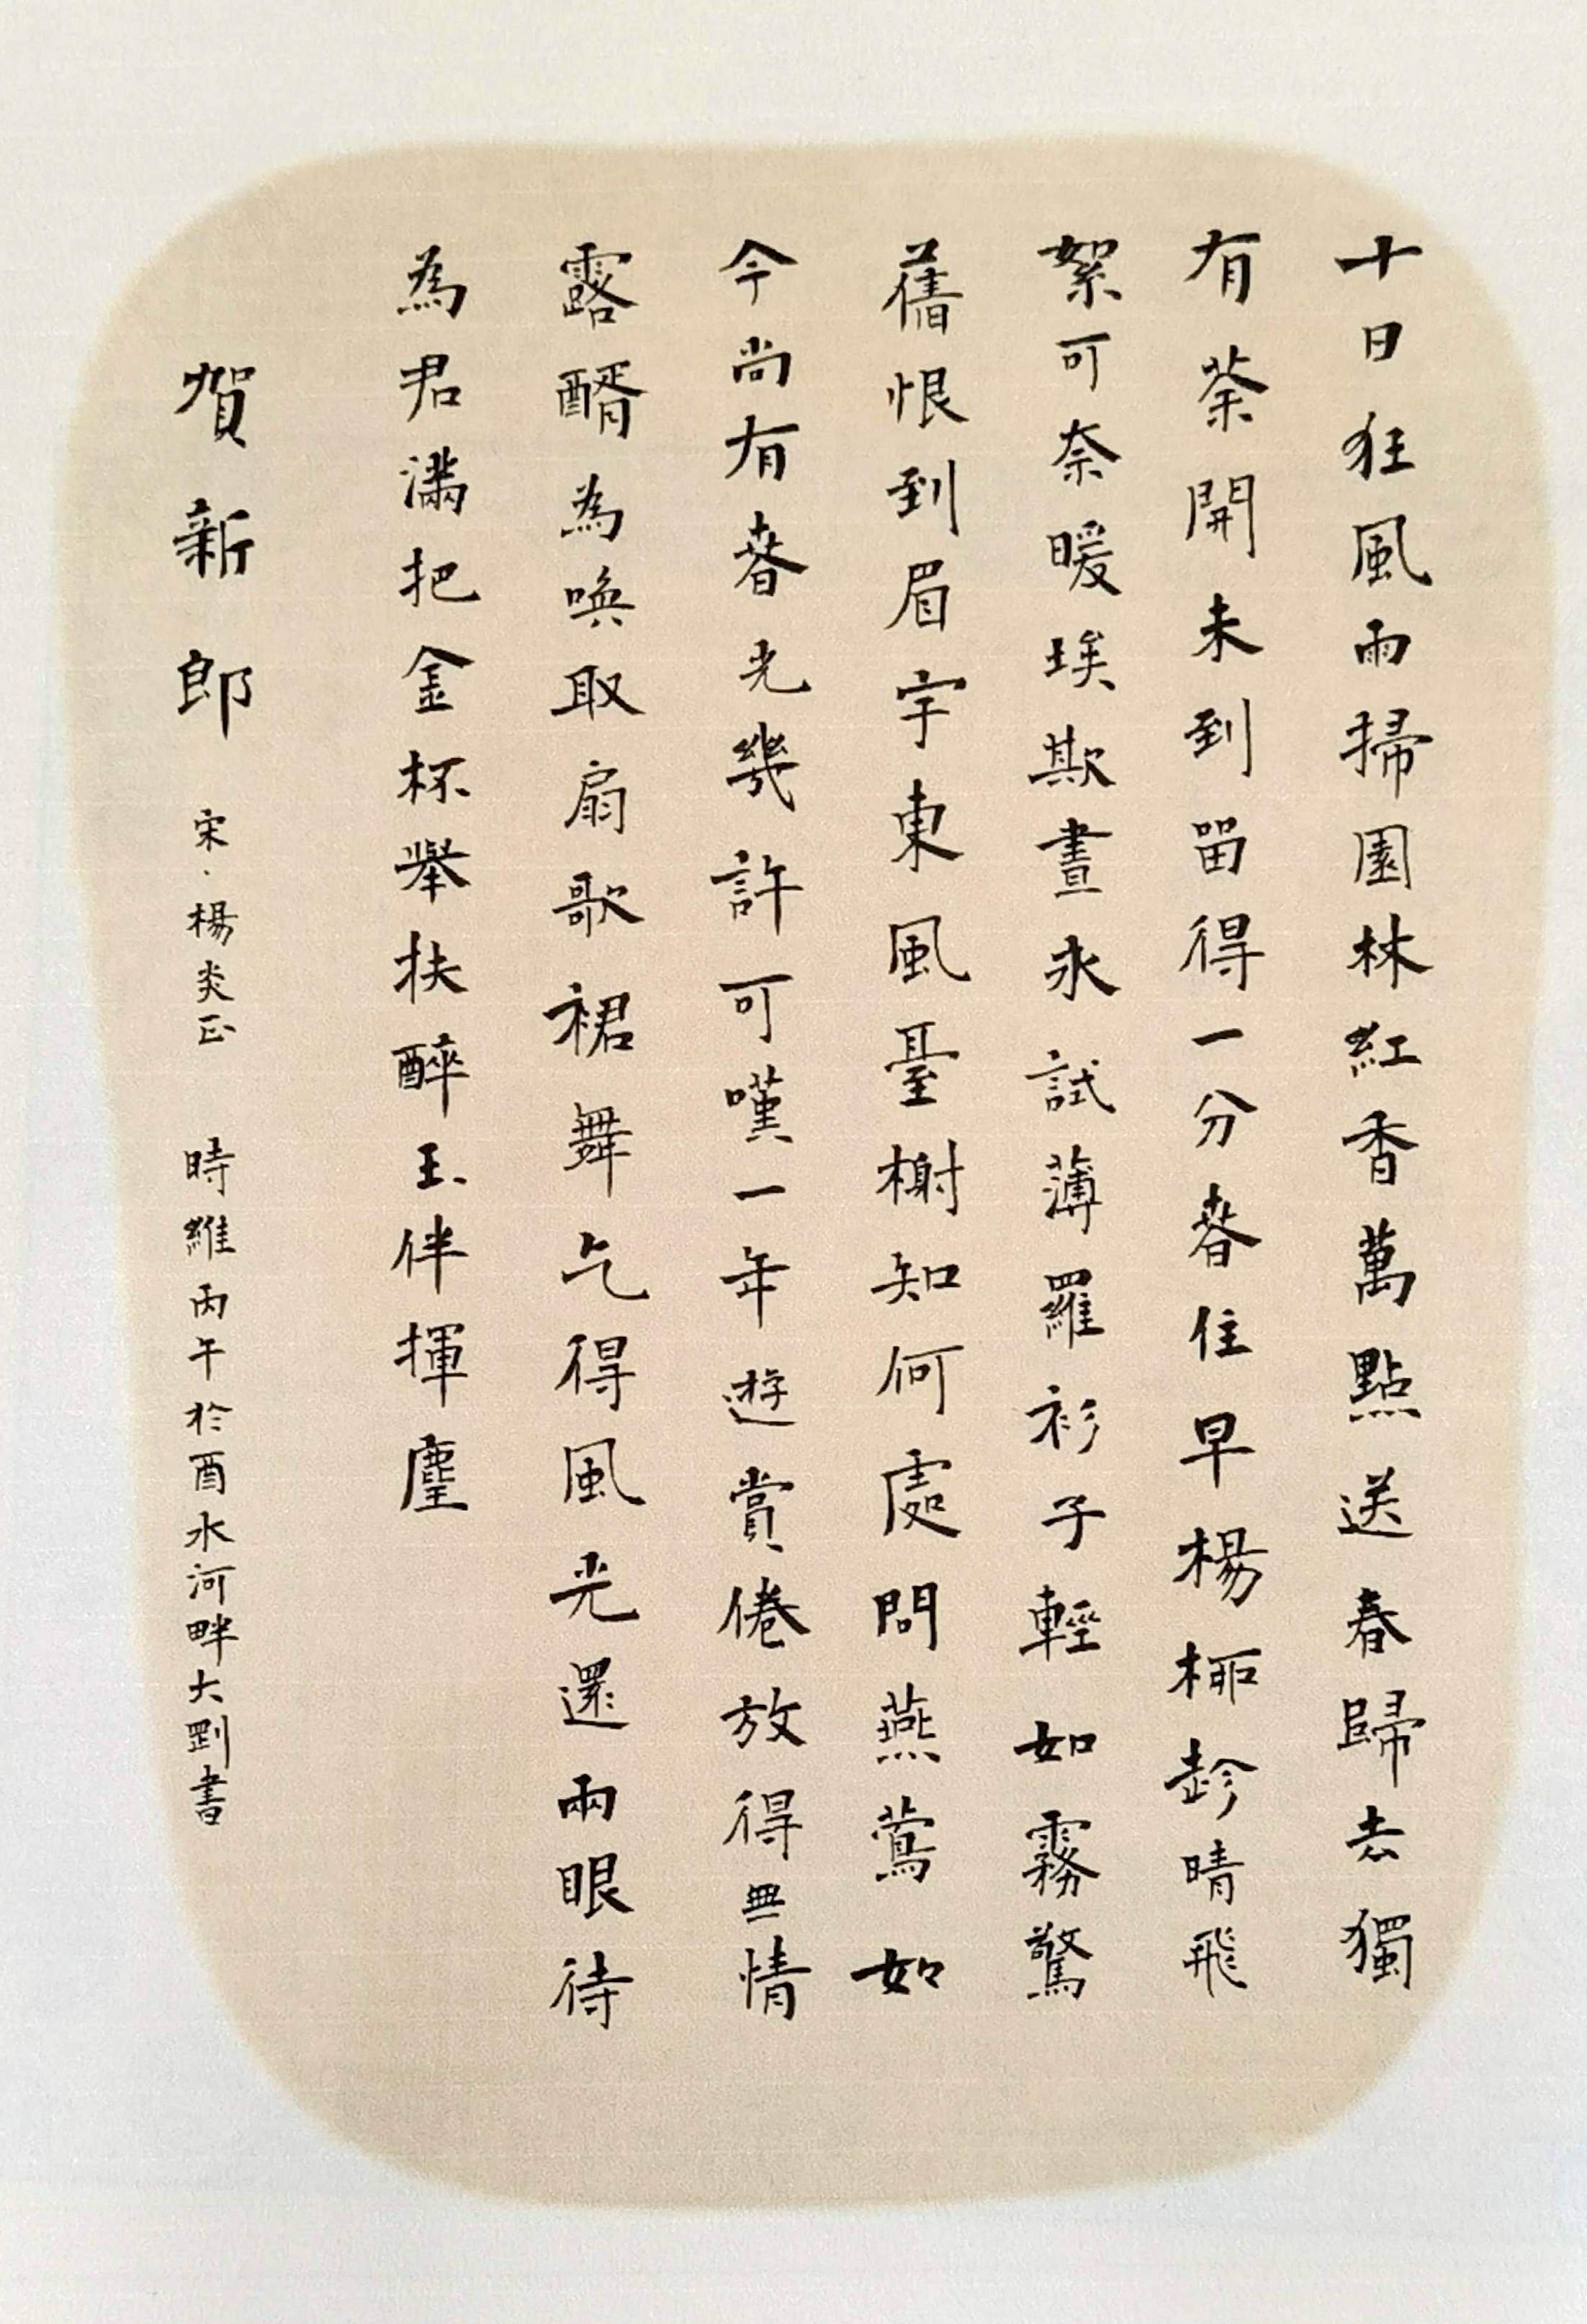 十日狂風雨掃園林紅香萬點送春歸去獨
有荼開未到留得一分春住早楊栁趂晴飛
絮可奈暖埃欺晝永試薄羅衫子輕如霧驚
舊恨到眉宇東風臺榭知何處問燕鶯如
今尚有春光幾許可嘆一年遊賞倦放得無情
露醑為喚取扇歌裙舞乞得風光還兩眼待
為君滿把金杯舉扶醉玉伴揮麈
賀新郎 宋·楊炎正 時維丙午於酉水河畔大剛書